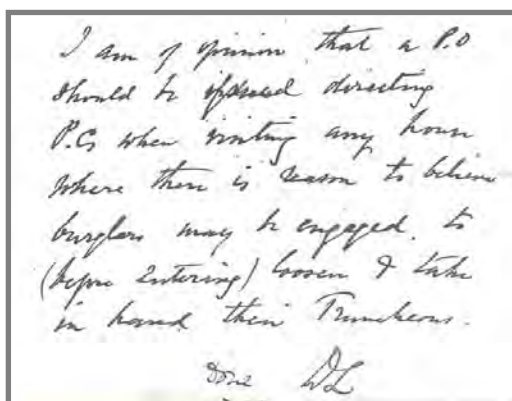 I am of opinion that a P.O
should be issued directing
P.Cs when visiting any house
where there is reason to believe
burglars may be engaged, to
(before entering) loosen & take
in hand their Truncheons.
Done DL